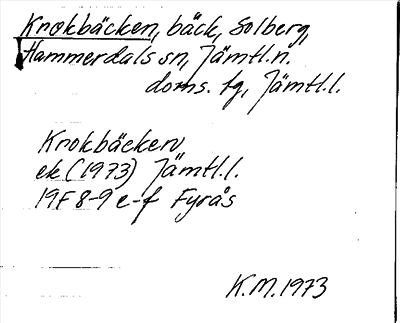 Krokbäcken, bäck, Solberg,
Hammerdals sn, Jämtl.n.
doms. tg, Jämtl.l.
Krokbäcken
ek (1973) Jämtl.l.
19F 8-9 e-f Fyrås
K.M. 1973